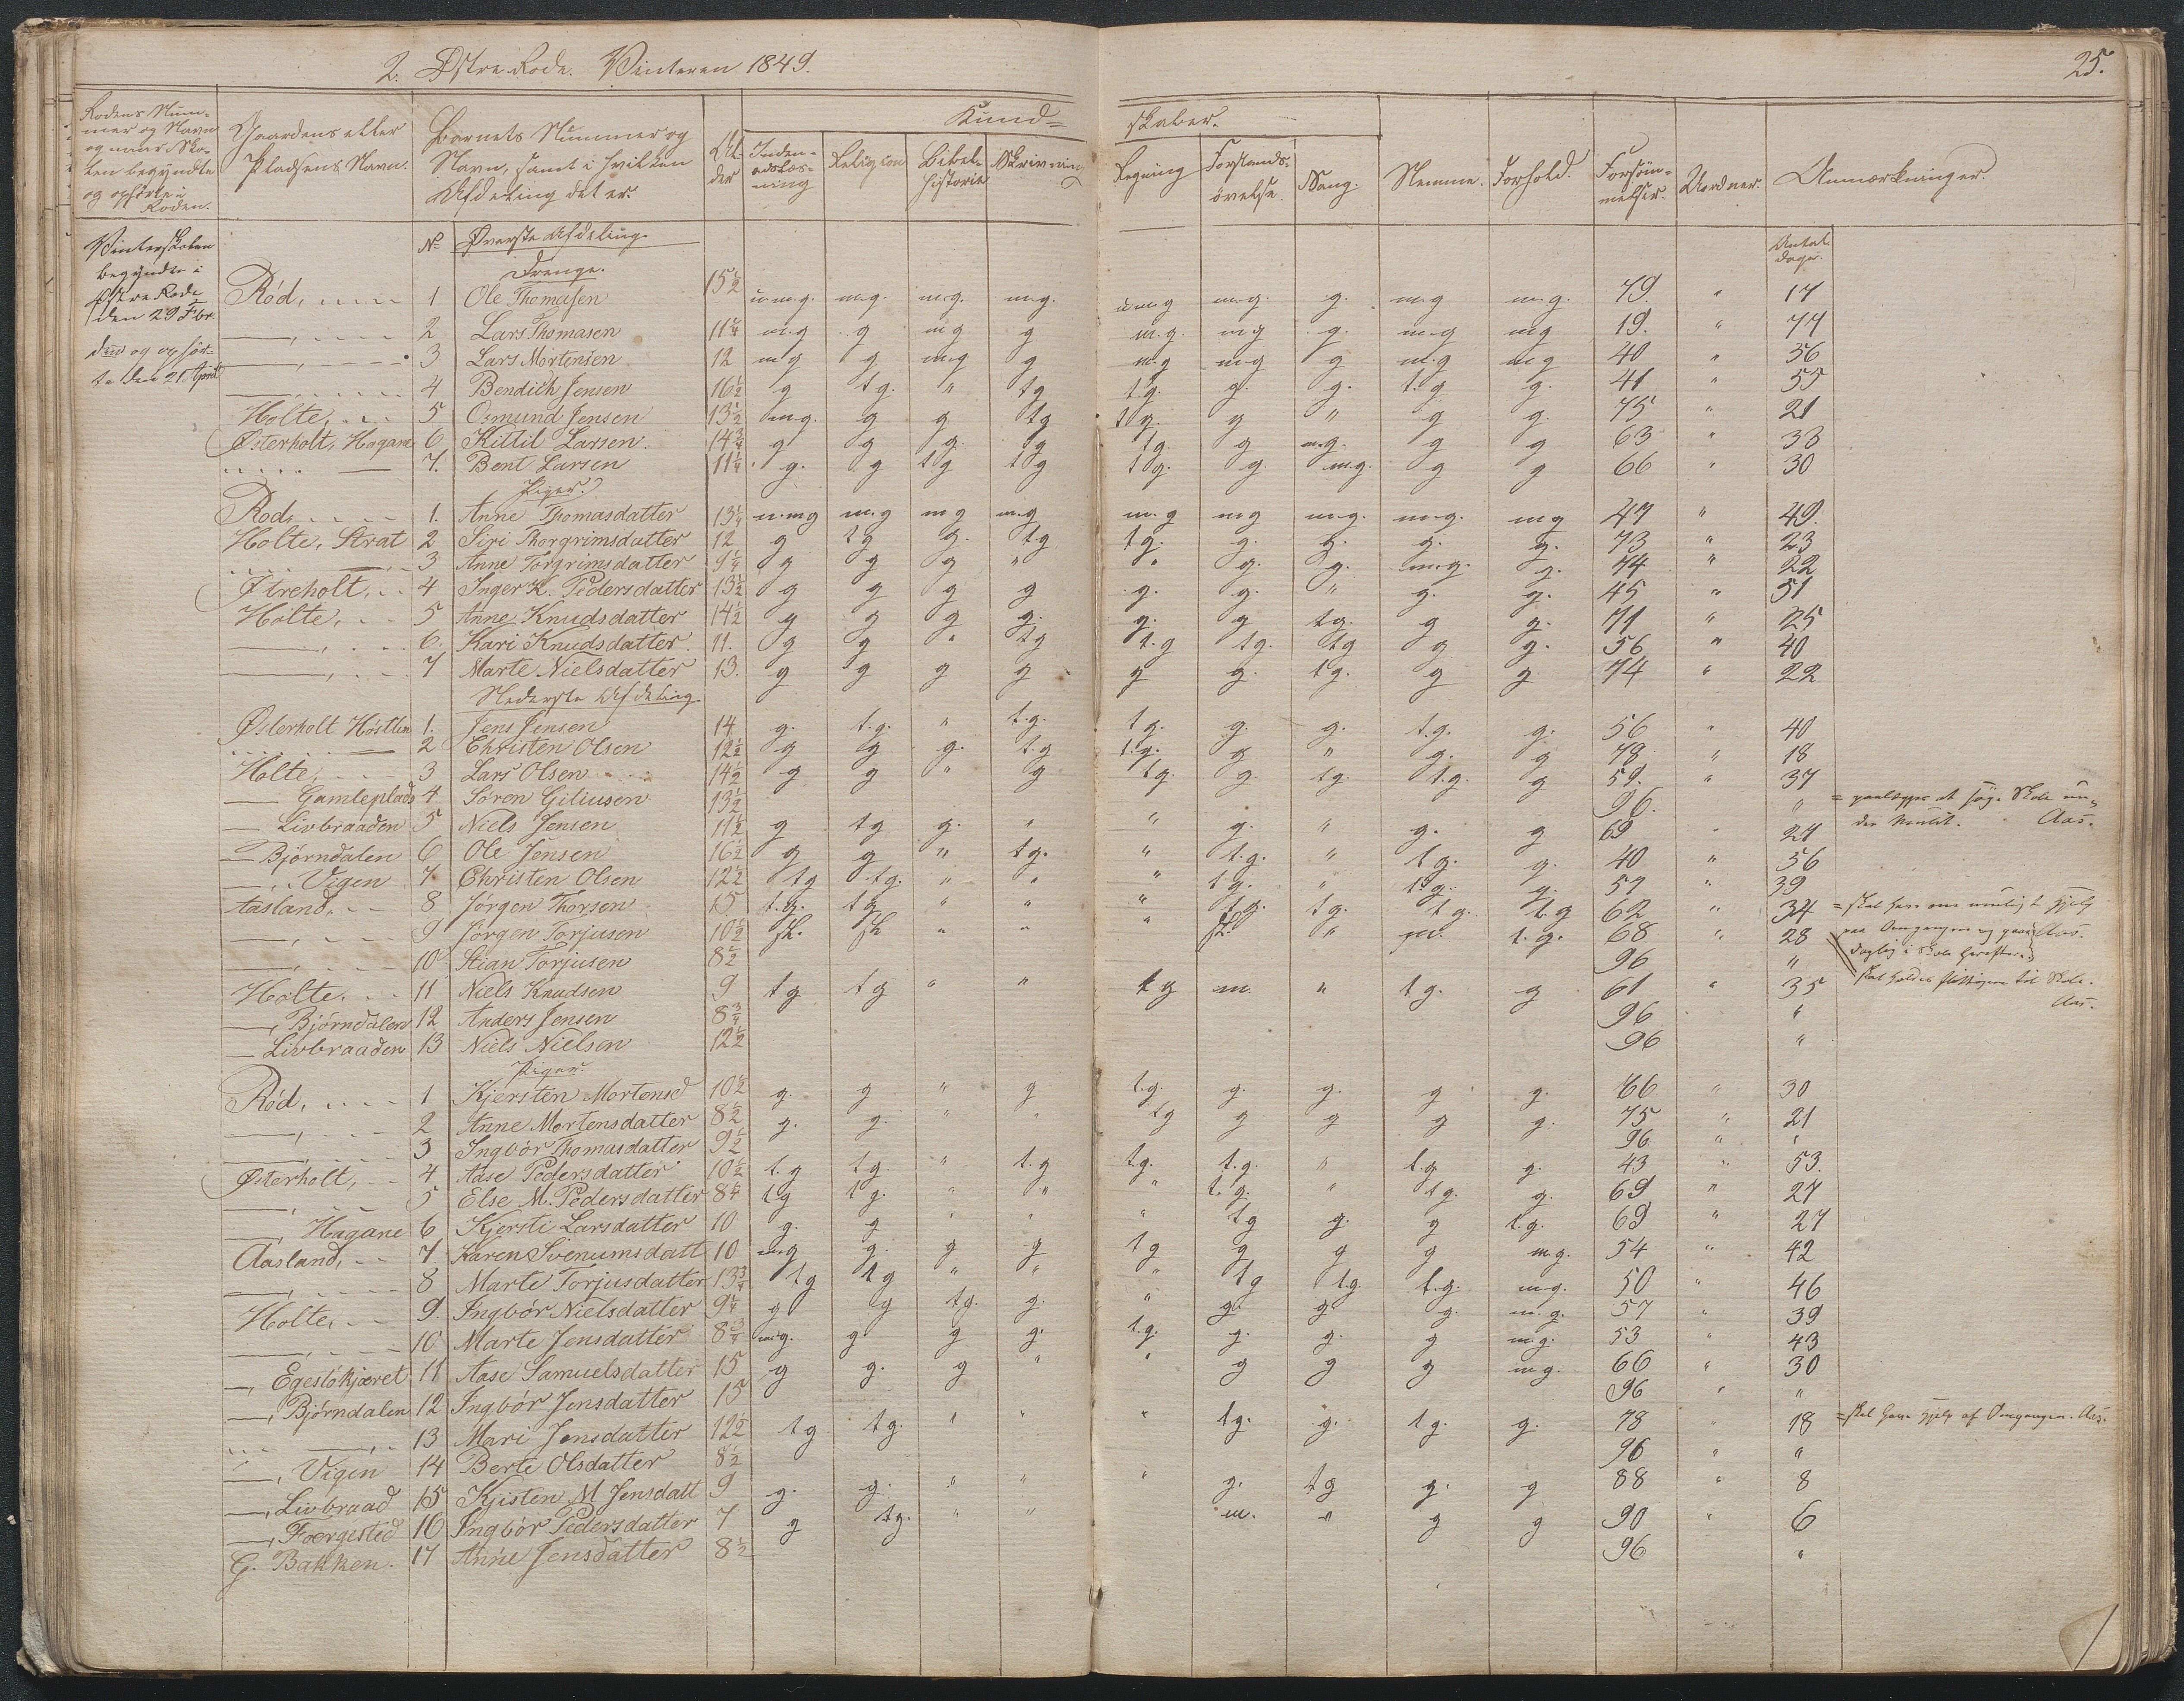 2. Østre Rode. Vinteren 1849.
25.
Rodens Nummer og Navn og naar Skolen begyndte og ophørte i Roden. | Gaardens eller Pladsens Navn. | Barnets Nummer og Navn, samt i hvilken Afdeling det er. | Alder | Indenadslæsning | Religion | Bibelhistorie | Skrivning | Regning | Forstandsøvelse. | Sang. | Nemme. | Forhold. | Forsømmelser. | Uordner. | Anmærkninger.
Kundskaber.
Vinterskolen
begyndte i
Østre Rode
den 29 Fbr.
og ophør-
te den 21 April
No Øverste Afdeling.
Antal dage.
Drenge.
Rød, 1 Ole Thomasen 15½ u.m.g. m.g. m.g. m.g. u.m.g m.g. g. m.g m.g. 79. " 17
—, 2 Lars Thomasen 11¼ m.g g m g g m.g. m g g. m.g m g 19. " 77
—, 3 Lars Mortensen 12 m g g m.g g m.g m.g g m.g m g 40 " 56
4 Bendich Jensen 16½ g t g. " t g t.g. g. g. t.g g. 41 " 55
Holte, 5 Osmund Jensen 13½ m.g. g g t g t g. g " g g. 75 " 21
Østerholt, Hagane 6 Kittil Larsen. 14¾ g g g. t g t g. g m.g. g g 63 " 33
— 7. Bent Larsen 11¼ g. g t g t g t g. g. m.g. g g 66 " 30
Piger.
Rød, 1. Anne Thomasdatter 13¼ u.m.g m.g m g m.g m.g m g m.g. m.g. m g 47 " 49.
Holte, Strat 2 Siri Thorgrimsdatter 12 g t g g. t g t g. g. g. g. g. 73 " 23
—, 3 Anne Torgrimsdatter 9¼ g g g " " g. g. m.g. g. 74 " 22
Østreholt, 4 Inger K. Pedersdatter 13½ g g g g g. g. " g. g. 45 " 51
Holte, 5 Anne Knudsdatter 14½ g g g g. g. g t g. g g. 71 " 25
—, 6. Kari Knudsdatter 11. g g " t g t.g t g. t g g g. 56 " 40
—, 7 Marte Nielsdatter 13. g g g g g g. t g. g g 74 " 22
Nederste Afdeling
Østerholt Høstlien 1. Jens Jensen 14 g. t.g. " t.g. t g. g. g. t.g. g. 56 " 40
— 2 Christen Olsen 12½ g g g. t.g t.g. g " g. g 78 " 18
Holte, 3 Lars Olsen 14½ g g " g t g. g. t g. t.g. g 59. " 37
— Gamleplads 4 Søren Giliusen 13½ 96. "
— Livbraaden 5 Niels Jensen 11½ g t g g. " " g. " g. g 69 " 27
— Bjørndalen 6 Ole Jensen 16½ g g " t g. " t.g. " t g. g. 40 " 56
—, Vigen 7 Christen Olsen 12½ t g t g. " " " t g. " t g. g. 57 " 39
Aasland, 8 Jørgen Thorsen 15 t.g. t g " " " t g. t g. t g. t.g 62 " 34
—, 9 Jørgen Torjusen 10½ sl. sl " " " sl. " m. t. g. 68 " 28
—, 10 Stian Torjusen 8½ 96 "
Holte, 11 Niels Knudsen 9 t g t g " " t g m. " t g. g 61 " 35
—, Bjørndalen 12 Anders Jensen 8¾ 96 "
— Livbraaden 13 Niels Nielsen 12½ 96 "
Aas.
Aas.
Aas.
Piger.
Rød, 1 Kjersten Mortensd 10½ g. g " g t.g. g. g. g g. 66 " 30
—, 2 Anne Mortensdatter 8½ g. g. " " t g g g g g. 75 " 21
—, 3 Ingbór Thomasdatter 9½ 96 " "
Østerholt, 4 Aase Pedersdatter 10½ t.g t g. " t.g t g. t.g. " t g g. 43 " 53.
—, 5 Else M. Pedersdatter 8¼ t g t g. " " " t. g. " t g. g. 69 " 27
—, Hagane 6 Kjersti Larsdatter 10 g. g " " " t g g. g t.g. 69 " 27
Aasland, 7 Karen Svenumsdatt 10 m.g g. g g t g g g g m.g. 54 " 42
—, 8 Marte Torjusdatter 13¾ t g t g " " " t g t.g. t.g. m.g. 50 " 46
Holte, 9. Ingbór Nielsdatter 9¼ g g t g. g. " g. g g. m.g. 57 " 39
—, 10 Marte Jensdatter 8¾ m.g. g g g. t.g. g. g. g m.g. 53 " 43
—, Egesløkjæret 11 Aase Samuelsdatter 15 g g. g " " g g g m.g. 66 " 30
—, Bjørndalen 12 Ingbór Jensdatter 15 96 " "
—, 13 Mari Jensdatter 12½ t g t g. " " " t g. g. t g. g. 78 " 18 = skal have Hjelp af Omgangen. Aas.
—, Vigen 14 Berte Olsdatter 8½ 96 " "
—, Livbraad 15 Kjisten M Jensdatt 9 g. g. " " " g. t g g. g 88 " 8
—, Færgested 16 Ingbór Pedersdatter 7 g t g. " " m. " g g 90 " 6
G. Bakken. 17 Anne Jensdatter 8½ 96 "